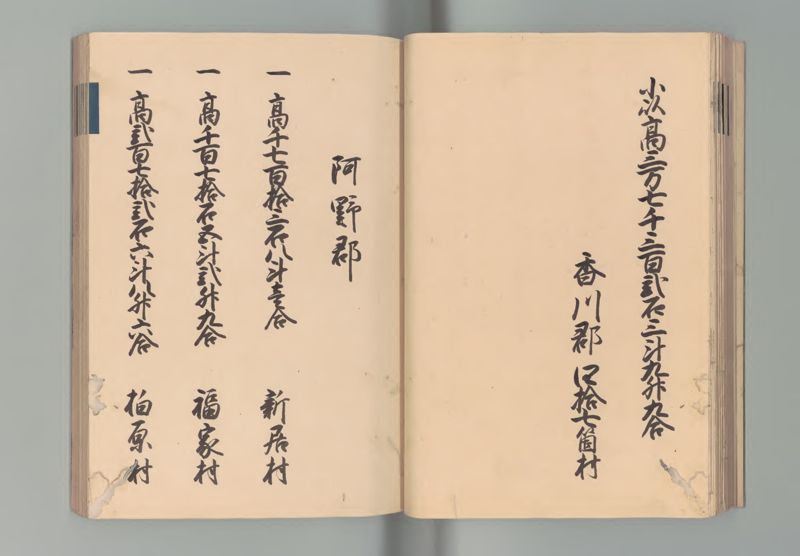 小以高三万七千三百弐石三斗九升九合
香川郡 四拾七箇村
阿野郡
一 高千七百拾三石八斗壱合 新居村
一 高千百七拾石五斗弐升九合 福家村
一 高弐百七拾弐石六斗八升六合 柏原村